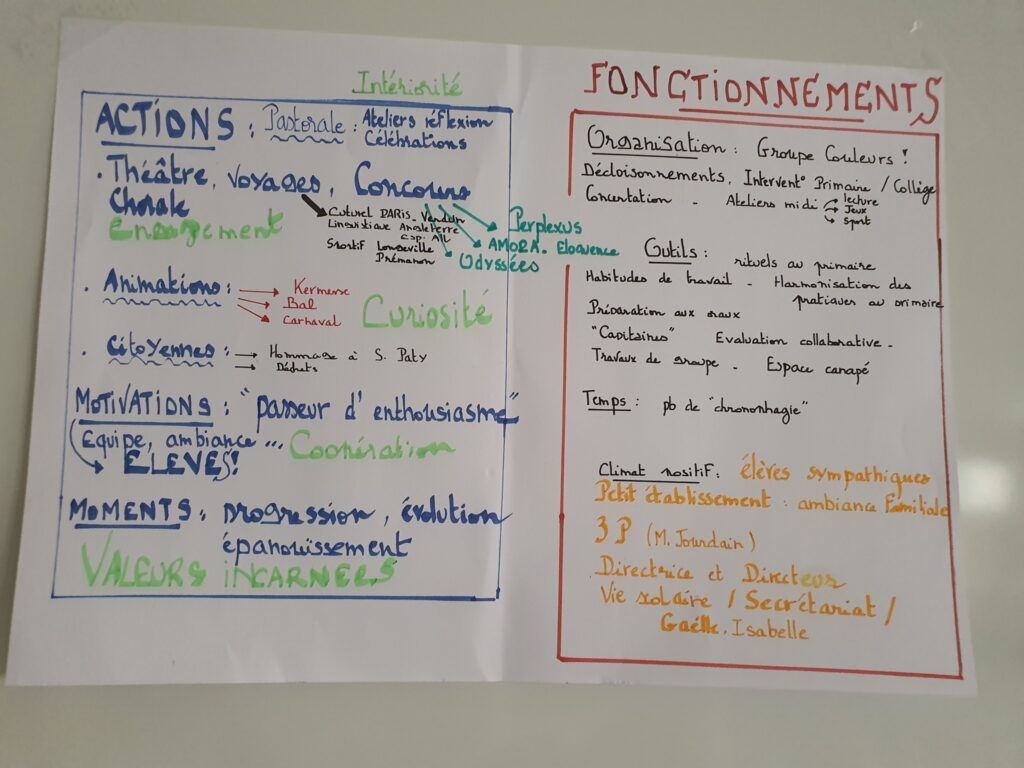 Intériorité
ACTIONS : Pastorale : Ateliers réflexion
Célébrations
. Théâtre, voyages, Concours
Chorale
Engagement
Culturel PARIS - Verdun
Linguistique Angleterre
Esp. All
Sportif Longeville
Prémanon
Perplexus
AMORA - Eloquence
Odyssées
. Animations :
Kermesse
Bal
Carnaval
Curiosité
. Citoyennes :
Hommage à S. Paty
Déchets
MOTIVATIONS : "passeur d'enthousiasme"
Equipe, ambiance ...
ELEVES!
Coopération
MOMENTS : progression, évolution
épanouissement
VALEURS INCARNEES
FONCTIONNEMENTS
Organisation : Groupe Couleurs !
Décloisonnements, Intervent° Primaire / Collège
Concertation - Ateliers midi
lecture
Jeux
sport
Outils : rituels au primaire
Habitudes de travail - Harmonisation des
pratiques au primaire
Préparation aux oraux
"Capitaines" Evaluation collaborative -
Travaux de groupe - Espace canapé
Temps : pb de "chronophagie"
Climat positif : élèves sympathiques
Petit établissement : ambiance Familiale
3P (M. Jourdain)
Directrice et Directeur
Vie scolaire / Secrétariat /
Gaëlle, Isabelle